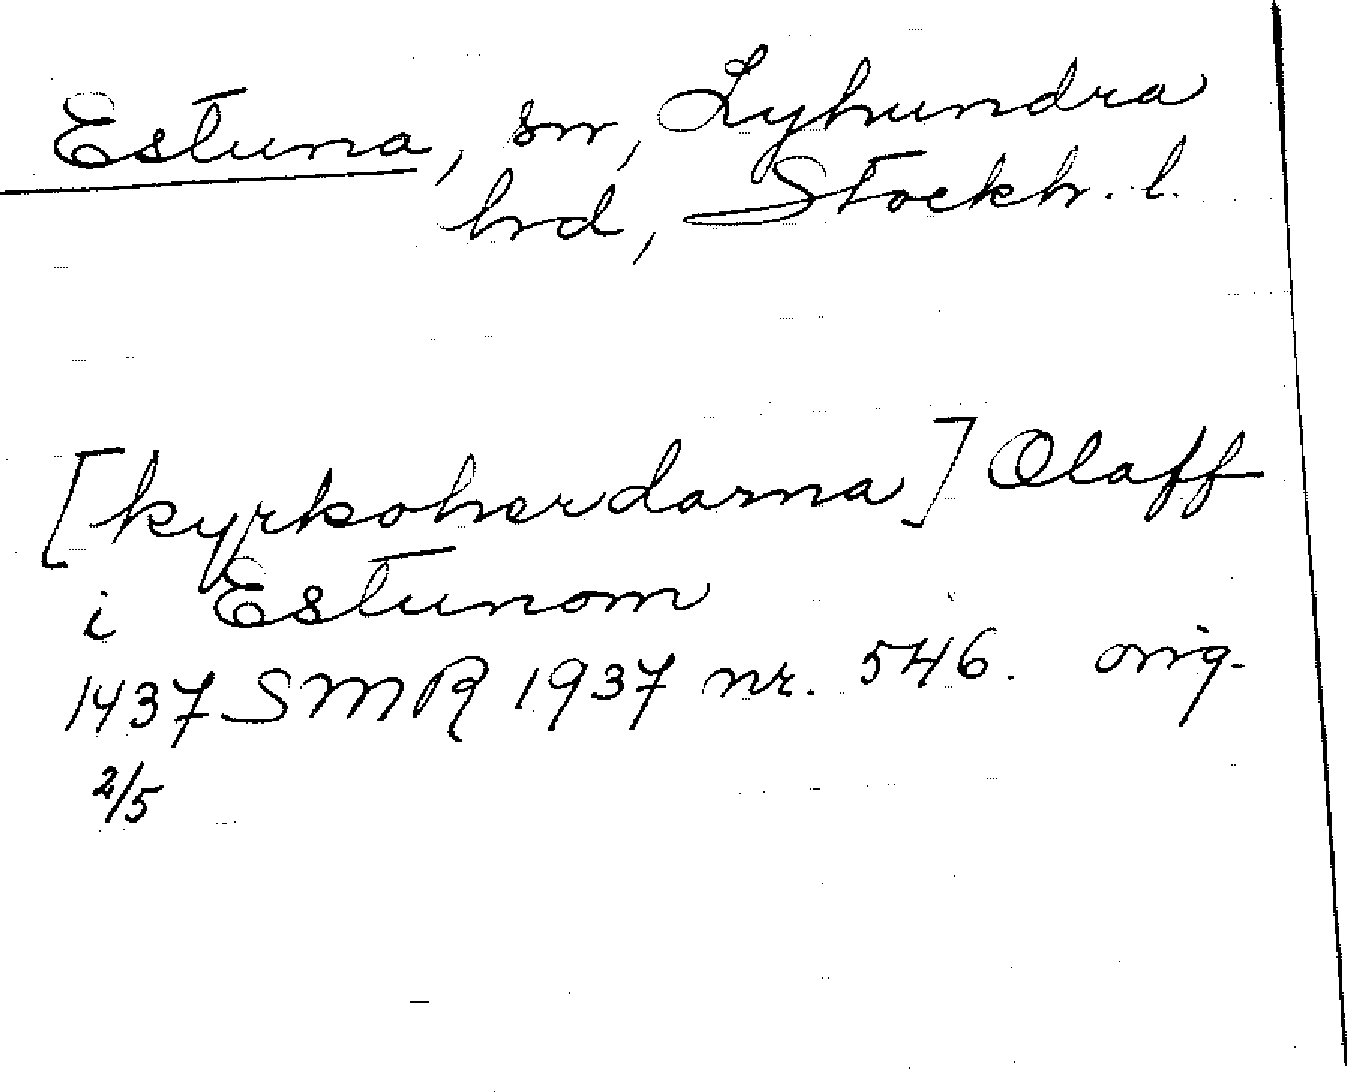 Estuna, sn, Lyhundra
hrd, Stockh. l.
[kyrkoherdarna] Olaff
i Estunom
1437 SMR 1937 nr. 546. orig.
2/5